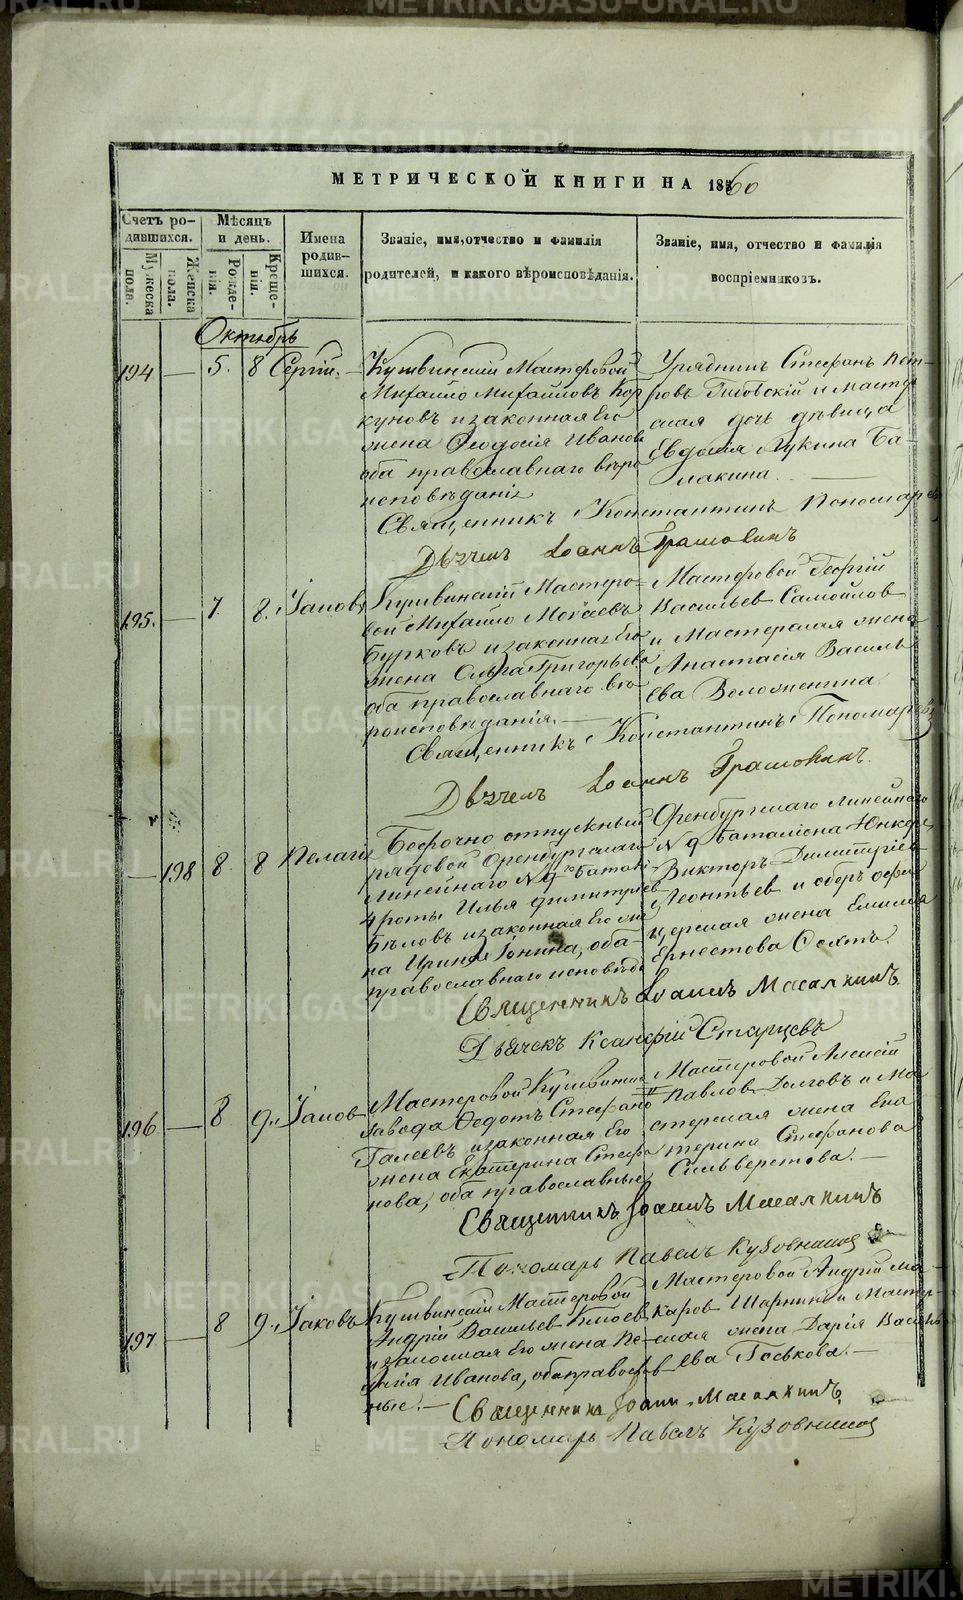 МЕТРИЧЕСКОЙ КНИГИ НА 1860
Счетъ ро-
дившихся.
Мужеска
пола.
Женска
пола.
Мѣсяцъ
и день.
Рожде-
нія.
Креще-
нія.
Имена
родив-
шихся.
Званіе, имя, отчество и фамилія
родителей, и какого вѣроисповѣданія.
Званіе, имя, отчество и фамилія
воспріемниковъ.
Октябрь
194 — 5. 8 Сергій. —
Кушвинскій Мастеровой
Михайло Михайловъ Кор
куновъ и законная его
жена Ѳеодосія Иванова
оба православнаго вѣро
исповѣданія
Урядникъ Стефанъ Пет-
ровъ и мастер
ская дочь дѣвица
Евдокія Лукина Ба-
лакина. —
Священникъ Константинъ Пономаревъ
Дьячекъ Іоаннъ
195. — 7. 8. Іаковъ
Кушвинскій Мастеро-
вой Михайло Моѵсеевъ
Бурковъ и законная его
жена Ольга Григорьева
оба православнаго вѣ-
роисповѣданія. —
Мастеровой Георгій
Васильев Самойлов
и Мастерская жена
Анастасія Василь
ева Воложенина
Священникъ Константинъ Пономаревъ
Дьячекъ Іоаннъ
— 198 8 8 Пелагія
Безсрочно отпускный
рядовой Оренбургскаго
Линейнаго № 9го Батал:
4 роты Илья Димитріев
Бѣловъ и законная его же
на Ирина Іонина, оба
православнаго исповѣд:
Оренбургскаго Линейнаго
№ 9 баталіона Юнкеръ
Викторъ Димитріев
Леонтьев и оберъ офи
церская жена Емилія
Ернестова
Священникъ Іоаннъ
Дьячекъ Ксанфій Старцевъ
196 — 8 9. Іаков
Мастеровой Кушвин
завода Ѳедотъ Стефано
Галеевъ и законная его
жена Екатерина Стефа
нова, оба православные
Мастеровой Алексій
Павлов Долговъ и Ма
стерская жена Ека
терина Стефанова
Сильверстова. —
Священникъ Іоаннъ
Пономарь Павелъ
197 — 8 9. Іаковъ
Кушвинскій Мастеровой
Андрій Васильев
и законная его жена Пе-
лагія Иванова, оба православ
ные. —
Мастеровой Андрій Ма-
каров и Мастер-
ская жена Дарія Василь
ева Госькова. —
Священникъ Іоаннъ
Пономарь Павелъ
METRIKI.GASO-URAL.RU